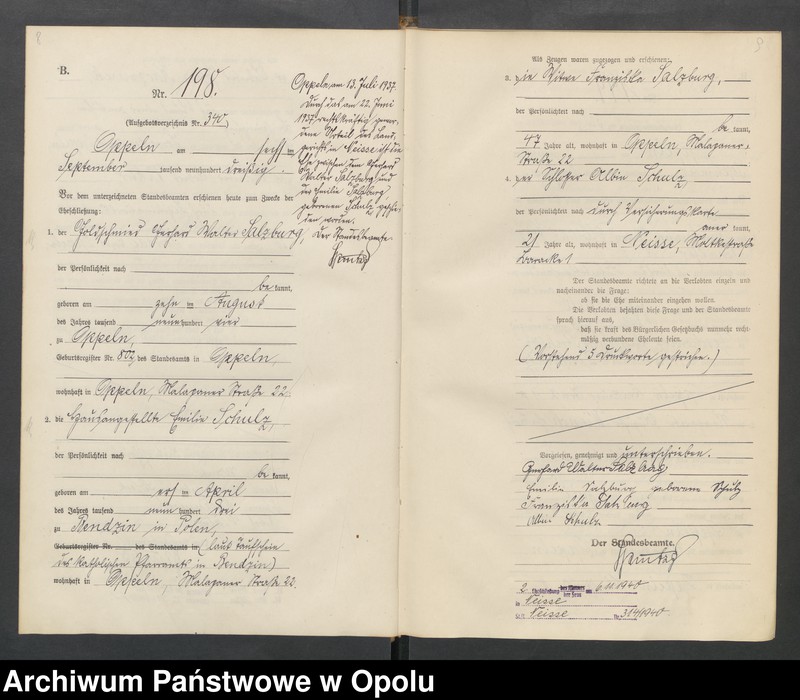 B.
Nr. 198.
(Aufgebotsverzeichnis Nr. 340)
Oppeln am sechs ten
September tausend neunhundert dreißig.
Vor dem unterzeichneten Standesbeamten erschienen heute zum Zwecke der
Eheschließung:
1. der Goldschmied Gerhard Walter Salzburg,
der Persönlichkeit nach
be kannt,
geboren am zehn ten August
des Jahres tausend neunhundert vier
zu Oppeln,
Geburtsregister Nr. 802, des Standesamts in Oppeln,
wohnhaft in Oppeln, Malapaner Straße 22;
2. die Hausangestellte Emilie Schulz,
der Persönlichkeit nach
be kannt,
geboren am ersten April
des Jahres tausend neun hundert drei
zu Bendzin in Polen,
Geburtsregister Nr. des Standesamts in (laut Taufschein
des katholischen Pfarramts in Bendzin)
wohnhaft in Oppeln, Malapaner Straße 22.
Oppeln, am 13. Juli 1937.
Durch das am 22. Juni
1937 rechtskräftig gewor-
dene Urteil des Land-
gerichts in Neisse ist die
Ehe zwischen dem Gerhard
Walter Salzburg und
der Emilie Salzburg
geborenen Schulz geschie-
den worden.
Der Standesbeamte.
Als Zeugen waren zugezogen und erschienen:
3. die Witwe Franziska Salzburg,
der Persönlichkeit nach
be kannt,
47 Jahre alt, wohnhaft in Oppeln, Malapaner-
Straße 22
4. der Schlosser Albin Schulz,
der Persönlichkeit nach durch Versicherungskarte
aner kannt,
21 Jahre alt, wohnhaft in Neisse, Moltkestraße
Baracke 1
Der Standesbeamte richtete an die Verlobten einzeln und
nacheinander die Frage:
ob sie die Ehe miteinander eingehen wollen.
Die Verlobten bejahten diese Frage und der Standesbeamte
sprach hierauf aus,
daß sie kraft des Bürgerlichen Gesetzbuchs nunmehr recht-
mäßig verbundene Eheleute seien.
(Vorstehend 5 Druckworte gestrichen.)
Vorgelesen, genehmigt und unterschrieben.
Gerhard Walter Salzburg
Emilie Salzburg geborene Schulz
Franziska Salzburg
Albin Schulz
Der Standesbeamte.
2. Eheschließung des Mannes der Frau am 6.11.1940
in Neisse
Neisse Nr. 314/1940
Archiwum Państwowe w Opolu